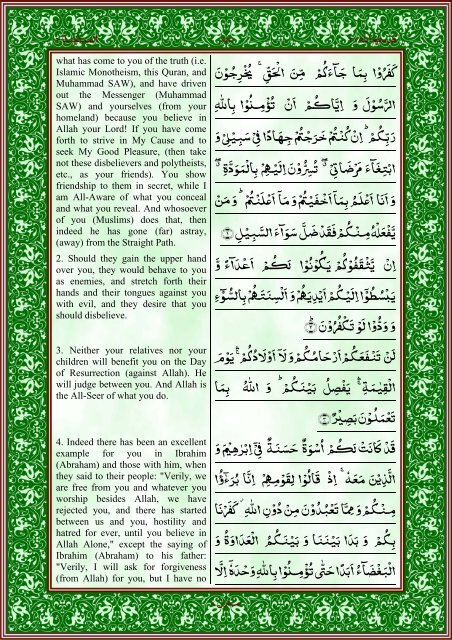 what has come to you of the truth (i.e.
Islamic Monotheism, this Quran, and
Muhammad SAW), and have driven
out the Messenger (Muhammad
SAW) and yourselves (from your
homeland) because you believe in
Allah your Lord! If you have come
forth to strive in My Cause and to
seek My Good Pleasure, (then take
not these disbelievers and polytheists,
etc., as your friends). You show
friendship to them in secret, while I
am All-Aware of what you conceal
and what you reveal. And whosoever
of you (Muslims) does that, then
indeed he has gone (far) astray,
(away) from the Straight Path.
2. Should they gain the upper hand
over you, they would behave to you
as enemies, and stretch forth their
hands and their tongues against you
with evil, and they desire that you
should disbelieve.
3. Neither your relatives nor your
children will benefit you on the Day
of Resurrection (against Allah). He
will judge between you. And Allah is
the All-Seer of what you do.
4. Indeed there has been an excellent
example for you in Ibrahim
(Abraham) and those with him, when
they said to their people: "Verily, we
are free from you and whatever you
worship besides Allah, we have
rejected you, and there has started
between us and you, hostility and
hatred for ever, until you believe in
Allah Alone," except the saying of
Ibrahim (Abraham) to his father:
"Verily, I will ask for forgiveness
(from Allah) for you, but I have no
كَفَرُوْا بِمَا جَآءَكُمْ مِّنَ الْحَقِّ ۚ يُخْرِجُوْنَ
الرَّسُوْلَ وَ اِيَّاكُمْ اَنْ تُؤْمِنُوْا بِاللّٰهِ
رَبِّكُمْ ؕ اِنْ كُنْتُمْ خَرَجْتُمْ جِهَادًا فِيْ سَبِيْلِيْ وَ
ابْتِغَآءَ مَرْضَاتِيْ ۖ تُسِرُّوْنَ اِلَيْهِمْ بِالْمَوَدَّةِ ۖ
وَ اَنَا اَعْلَمُ بِمَاۤ اَخْفَيْتُمْ وَ مَاۤ اَعْلَنْتُمْ ؕ وَ مَنْ
يَّفْعَلْهُ مِنْكُمْ فَقَدْ ضَلَّ سَوَآءَ السَّبِيْلِ ﴿۱﴾
اِنْ يَّثْقَفُوْكُمْ يَكُوْنُوْا لَكُمْ اَعْدَآءً وَّ
يَبْسُطُوْۤا اِلَيْكُمْ اَيْدِيَهُمْ وَ اَلْسِنَتَهُمْ بِالسُّوْٓءِ
وَ وَدُّوْا لَوْ تَكْفُرُوْنَ ؕ﴿۲﴾
لَنْ تَنْفَعَكُمْ اَرْحَامُكُمْ وَ لَاۤ اَوْلَادُكُمْ ۚ يَوْمَ
الْقِيٰمَةِ ۚ يَفْصِلُ بَيْنَكُمْ ؕ وَ اللّٰهُ بِمَا
تَعْمَلُوْنَ بَصِيْرٌ ﴿۳﴾
قَدْ كَانَتْ لَكُمْ اُسْوَةٌ حَسَنَةٌ فِيْۤ اِبْرٰهِيْمَ وَ
الَّذِيْنَ مَعَهٗ ۚ اِذْ قَالُوْا لِقَوْمِهِمْ اِنَّا بُرَءٰٓؤُا
مِنْكُمْ وَ مِمَّا تَعْبُدُوْنَ مِنْ دُوْنِ اللّٰهِ ؗ كَفَرْنَا
بِكُمْ وَ بَدَا بَيْنَنَا وَ بَيْنَكُمُ الْعَدَاوَةُ وَ
الْبَغْضَآءُ اَبَدًا حَتّٰى تُؤْمِنُوْا بِاللّٰهِ وَحْدَهٗۤ اِلَّا